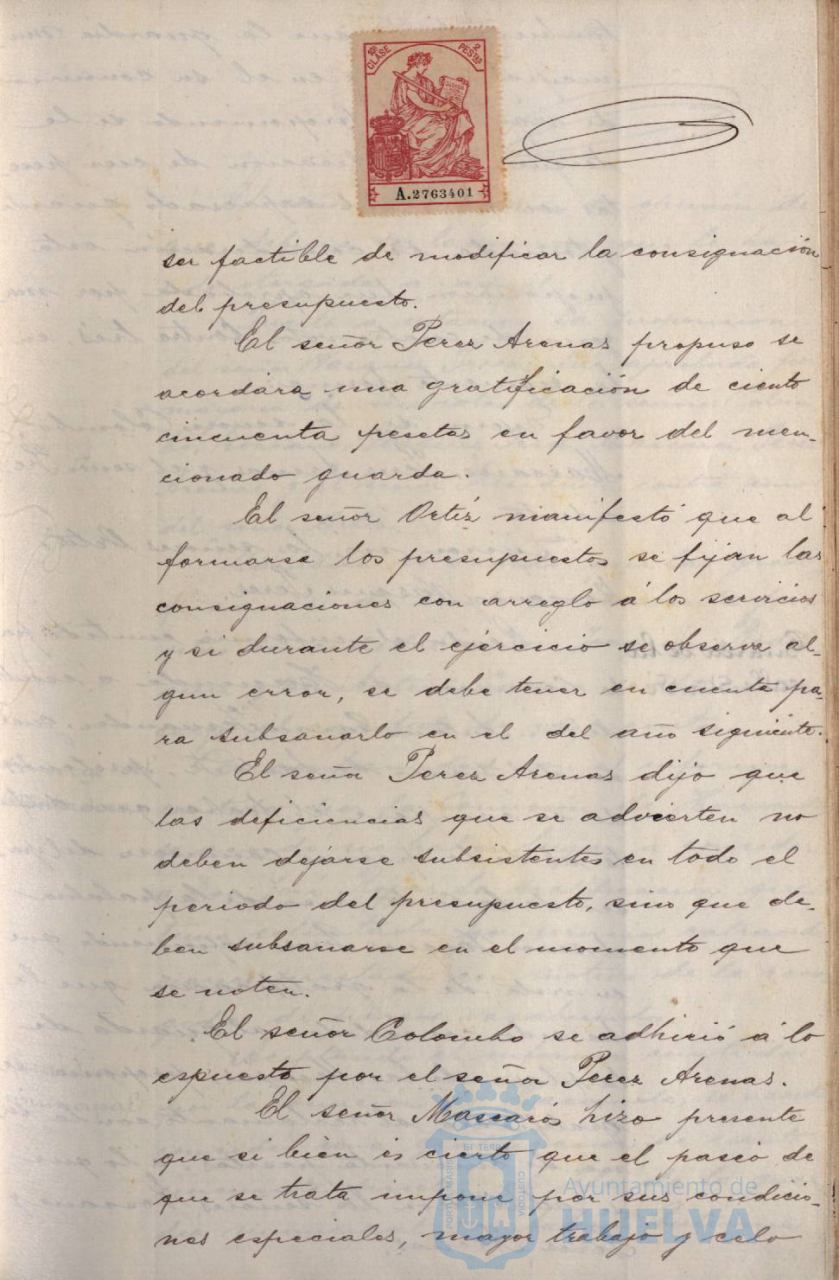 10ª CLASE 2 PESTAS
A.2763401
ser factible de modificar la consignación
del presupuesto.
El señor Perez Arenas propuso se
acordara una gratificación de ciento
cincuenta pesetas en favor del men-
cionado guarda.
El señor Ortíz manifestó que al
formarse los presupuestos se fijan las
consignaciones con arreglo á los servicios
y si durante el ejercicio se observa al-
gun error, se debe tener en cuenta pa-
ra subsanarlo en el del año siguiente.
El señor Perez Arenas dijo que
las deficiencias que se advierten no
deben dejarse subsistentes en todo el
periodo del presupuesto, sino que de-
ben subsanarse en el momento que
se noten.
El señor Colombo se adhirió á lo
espuesto por el señor Perez Arenas.
El señor Mascarós hizo presente
que si bien es cierto que el paseo de
que se trata impone por sus condicio-
nes especiales, mayor trabajo y celo
Ayuntamiento de
HUELVA